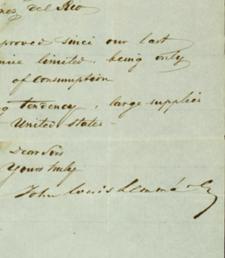 del Rio
proved since our last
limited, being only
of Consumption
tendency, large supplies
United States -
Dear Sirs
Yours truly
John Louis Lemmé & Co